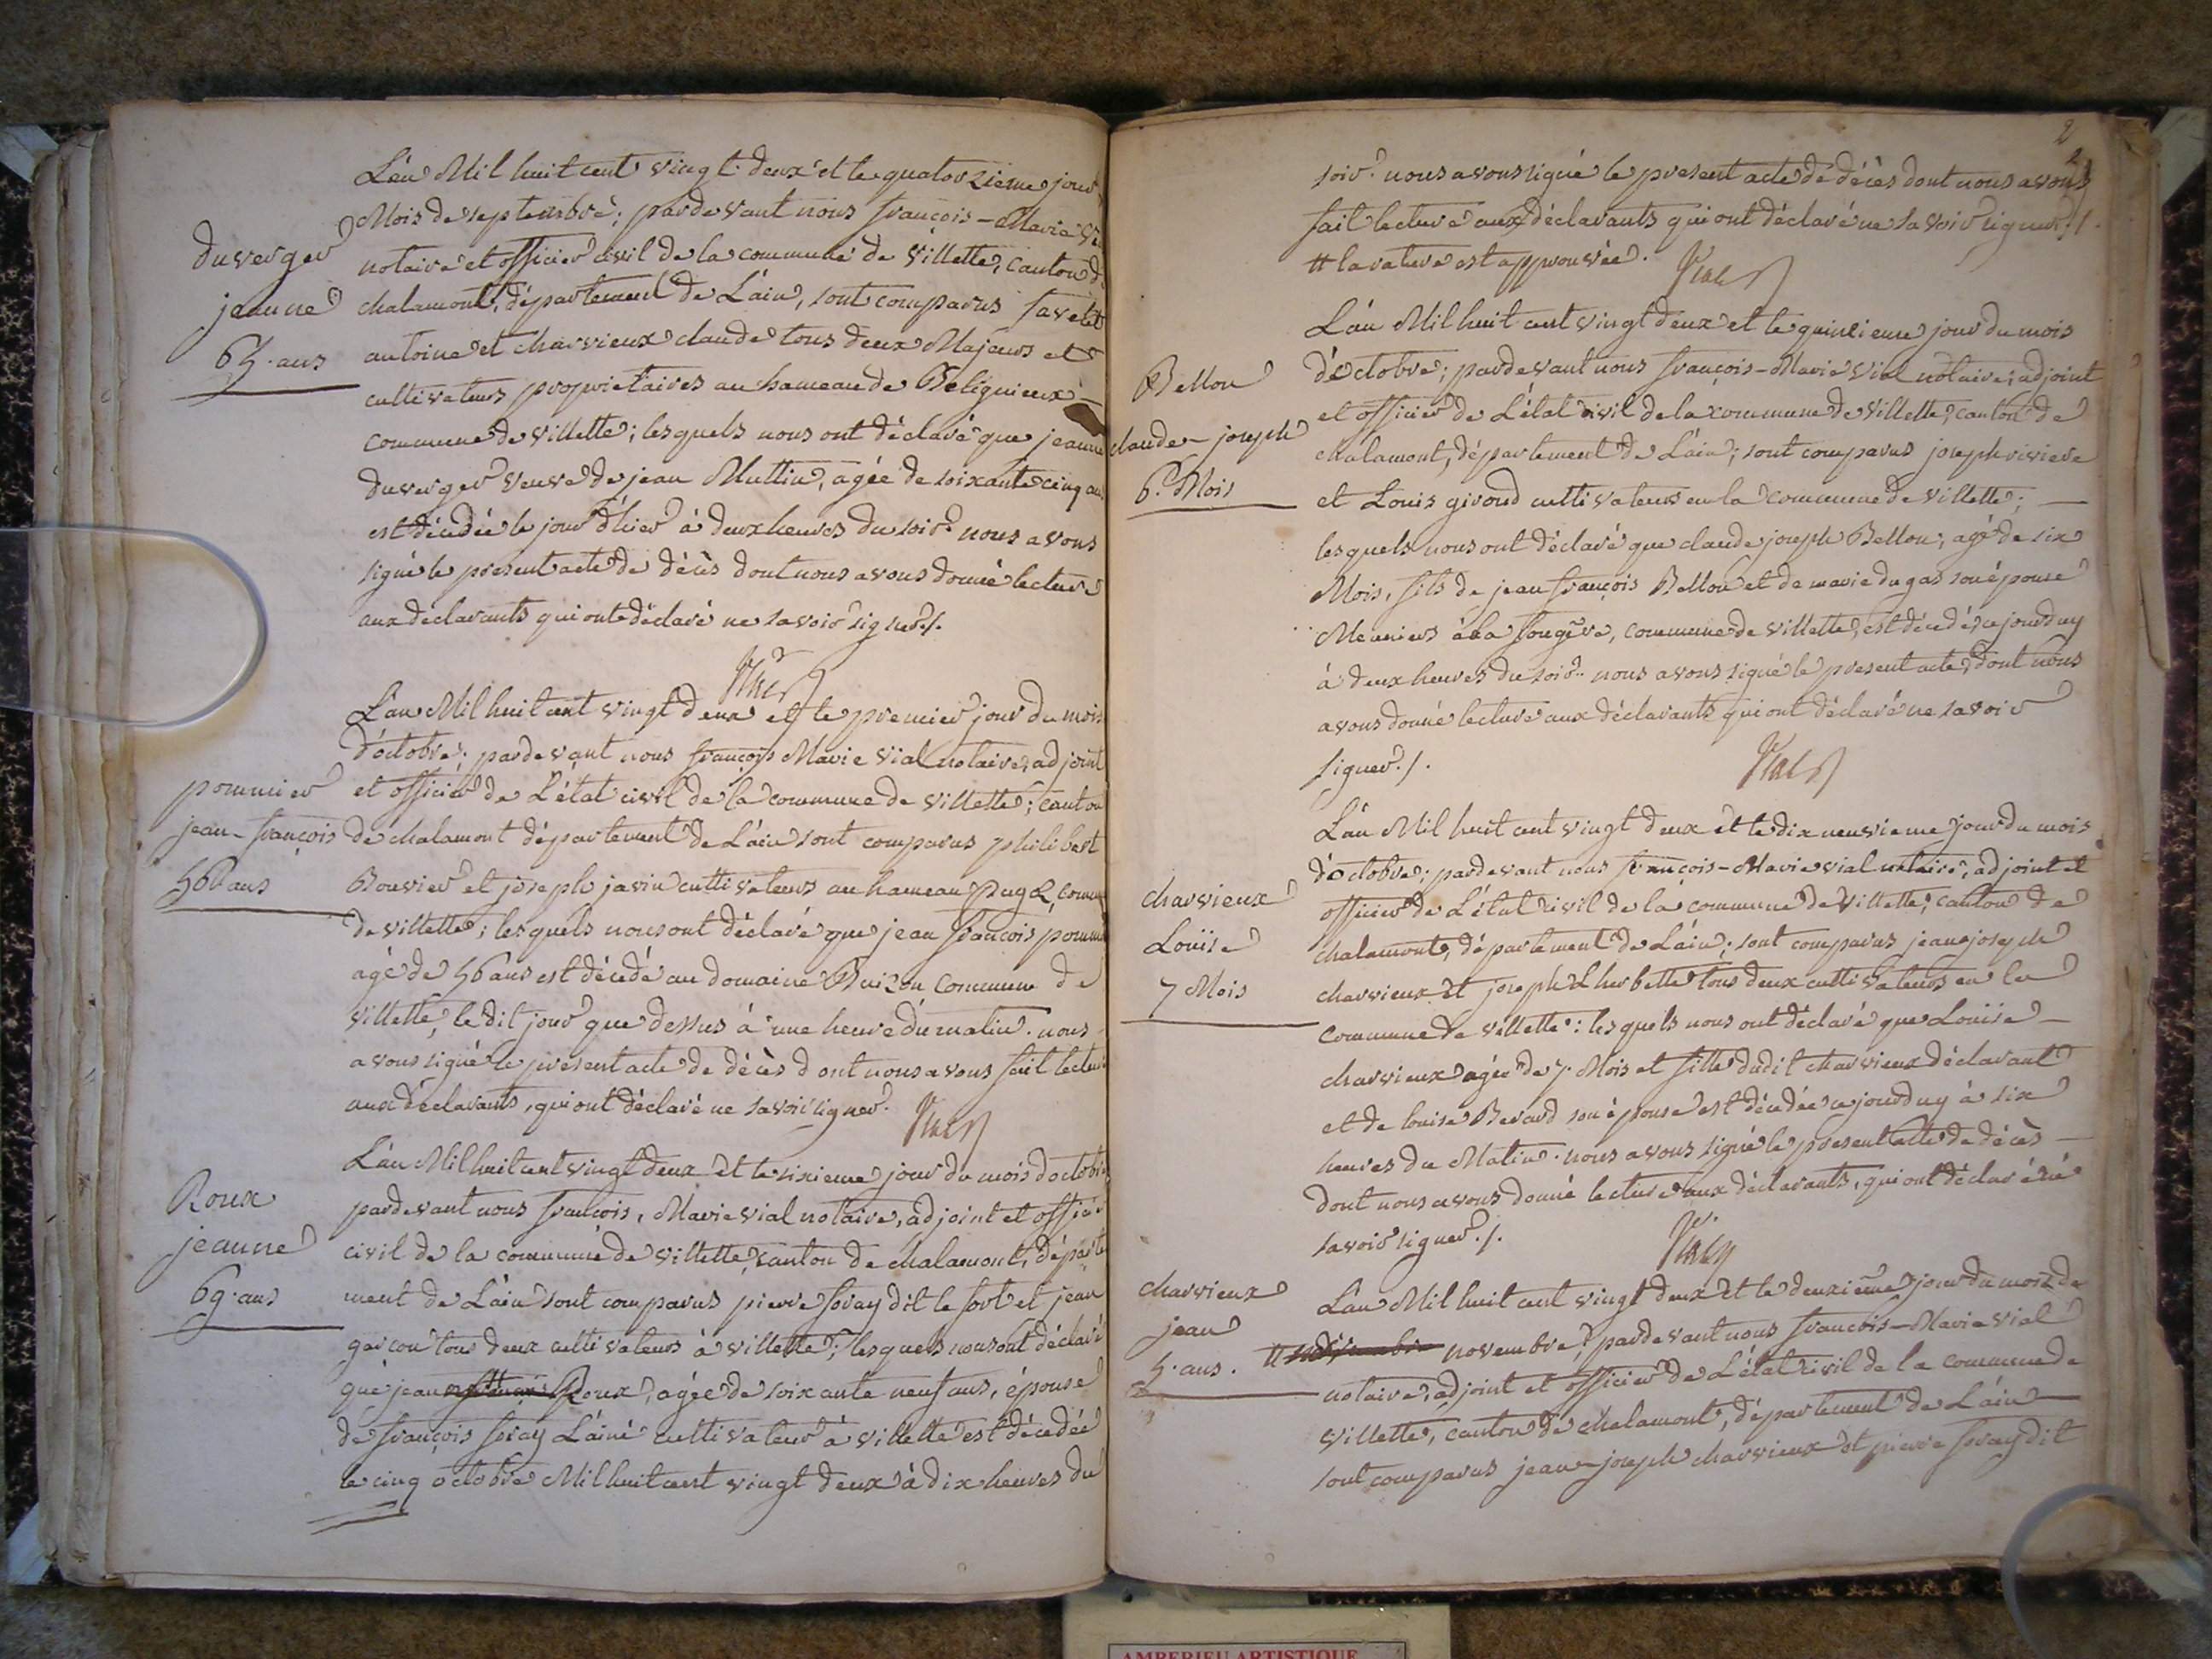 L'an Mil huit cent vingt deux et le quatorzieme jour
Mois de septembre; pardevant nous françois-Marie Vi
notaire et officier civil de la commune de Villette, canton d
chalamont, département de L'ain, sont comparus Favelet
antoine et charvieux claude tous deux Majeurs et
cultivateurs proprietaires au hameau de Beliguieux
commune de Villette; lesquels nous ont déclaré que jeanne
Duverger veuve de jean Muttin, agée de soixante cinq ans
est décédée le jour d'hier à deux heures du soir. nous avons
signé le present acte de décès dont nous avons donné lecture
aux déclarants qui ont déclaré ne savoir signer./.
Vial
Duverger
jeanne
65. ans
L'an Mil huit cent vingt deux et le premier jour du mois
d'octobre; pardevant nous françois Marie Vial notaire, adjoint
et officier de L'état civil de la commune de Villette; canton
de chalamont département de L'ain sont comparus philibert
Bouvier et joseph javin cultivateurs au hameau commu
de villette; lesquels nous ont déclaré que jean françois pommi
agé de 56 ans est décédé au domaine Buizon Commune de
Villette, le dit jour que dessus à une heure du matin. nous
avons signé le présent acte de décès dont nous avons fait lectur
aux déclarants, qui ont déclaré ne savoir signer.
Vial
pommier
jean-françois
56 ans
L'an Mil huit cent vingt deux et le sixieme jour du mois doctobre
pardevant nous françois, Marie Vial notaire, adjoint et officier
civil de la commune de villette, canton de chalamont, départe
ment de L'ain sont comparus pierre foray dit le fort et jean
garçon tous deux cultivateurs à villette; lesquels nous ont déclaré
que jean Roux, agée de soixante neuf ans, épouse
de françois foray L'ainé cultivateur à villette est décédée
le cinq octobre Mil huit cent vingt deux à dix heures du
Roux
jeanne
69. ans
2
soir. nous avons signé le present acte de décès dont nous avons
fait lecture aux déclarants qui ont déclaré ne savoir signer./.
# la rature est approuvée. Vial
L'an Mil huit cent vingt deux et le quinzieme jour du mois
d'octobre; pardevant nous françois-Marie Vial notaire, adjoint
et officier de L'état civil de la commune de Villette, canton de
chalamont, département de L'ain; sont comparus joseph riviere
et Louis giroud cultivateurs en la commune de villette;
lesquels nous ont déclaré que claude joseph Bellon, agé de six
Mois, fils de jean françois Bellon et de marie dugas son épouse
Meuniers à la fougère, commune de villette, est décédé, cejourduy
à deux heures du soir. nous avons signé le present acte, dont nous
avons donné lecture aux déclarants qui ont déclaré ne savoir
signer./. Vial
Bellon
claude-joseph
6. Mois
L'an Mil huit cent vingt deux et le dix neuvieme jour du mois
d'octobre; pardevant nous françois-Marie Vial notaire, adjoint et
officier de L'état civil de la commune de Villette, canton de
chalamont, département de L'ain; sont comparus jean joseph
charvieux et joseph Lherbette tous deux cultivateurs en la
commune de villette: lesquels nous ont déclaré que Louise
charvieux agée de 7. Mois et fille dudit charvieux déclarant
et de louise Berard son épouse est décédée cejourduy à six
heures du Matin. nous avons signé le present acte de décès
dont nous avons donné lecture aux déclarants, qui ont déclaré ne
savoir signer./. Vial
charvieux
Louise
7 Mois
L'an Mil huit cent vingt deux et le deuxième jour du mois de
# novembre, pardevant nous francois-Marie Vial
notaire, adjoint et officier de L'état civil de la commune de
Villette, canton de chalamont, département de L'ain
sont comparus jean-joseph charvieux et pierre foray dit
charvieux
jean
5. ans.
AMBERIEU ARTISTIQUE